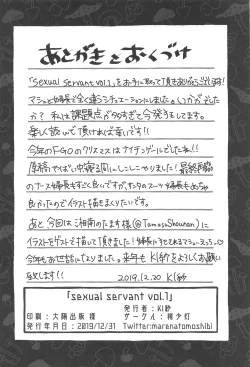 あとがきとおくづけ
「sexual servant vol.1」をお手に取って頂きありがとうございます!
マシュと婦長で全く違うシチュエーションにしました。いかがでした
か? 私は課題点が多すぎて今発うしてます。
楽しく読んで頂ければ幸いです!!
今年のFGOのクリスマスはナイチンゲールでしたね!!
原稿やばい中寝る間にしこしこやりました!最終再臨
のナース婦長もすごく良いですが、サンタのスーツ婦長もめちゃ
良かったのでイラスト描きまくりたいです。
あと今回は湘南のたます様(@TamasuShounan)に
イラストをゲストで描いて頂きました!
今年もお世話になりました。来年もK1紗をよろしくお願い
致します!!
2019.12.20 K1紗
「sexual servant vol.1」
発行者:K1紗
印刷:大陽出版 様
サークル:稀少灯
発行年月日:2019/12/31
Twitter:marenatomoshibi